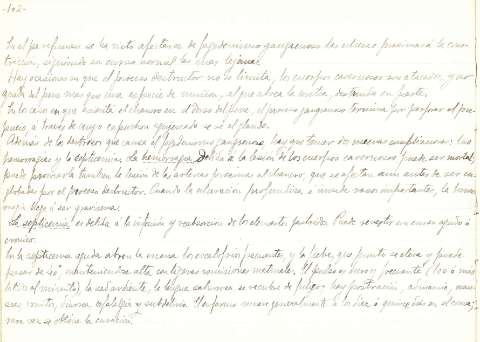 -102-
En el paréfimosis se ha visto afectarse de fagedenismo gangrenoso las ulceras proximas a la cons-
tricción, siguiendo su curso normal las mas lejanas.
Hay ocasiones en que el proceso destructor no se limita, los cuerpos cavernosos son atacados, y no
queda del pene mas que una especie de muñon, al que abre la uretra, destruida en parte.
En los casos en que asienta el chancro en el dorso del pene, el proceso gangrenoso termina por perforar el pre-
pucio, a través de cuyo capuchon se ve el glande.
Además de los destrozos que causa el fagedenismo gangrenoso, hay que temer dos nuevas complicaciones; las
hemorragias y la septicemia. La hemorragia debida a la lesión de los cuerpos cavernosos puede ser mortal,
puede provocarla tambien la lesión de las arterias proximas al chancro, que se afectan aun antes de ser en-
globadas por el proceso destructor. Cuando la ulceración profundiza é invade vasos importantes, la hemo-
rragia llega á ser gravísima.
La septicemia es debida á la infección y reabsorción de los elementos putridos. Puede revestir un curso agudo ó
cronico.
En la septicemia aguda abren la escena los escalofríos frecuentes, y la fiebre, que pronto se eleva y puede
pasar de 40° manteniendose alta con ligeras remisiones matinales. El pulso es duro y frecuente (100 ó mas
latidos al minuto), la sed ardiente, la lengua saburrosa se recubre de fuligo. Hay postración, adinamia, nau-
seas, vomitos, diarrea, cefalalgia y subdelirio. El enfermo muere generalmente a los diez ó quince días en el coma;
rara vez se obtiene la curación.